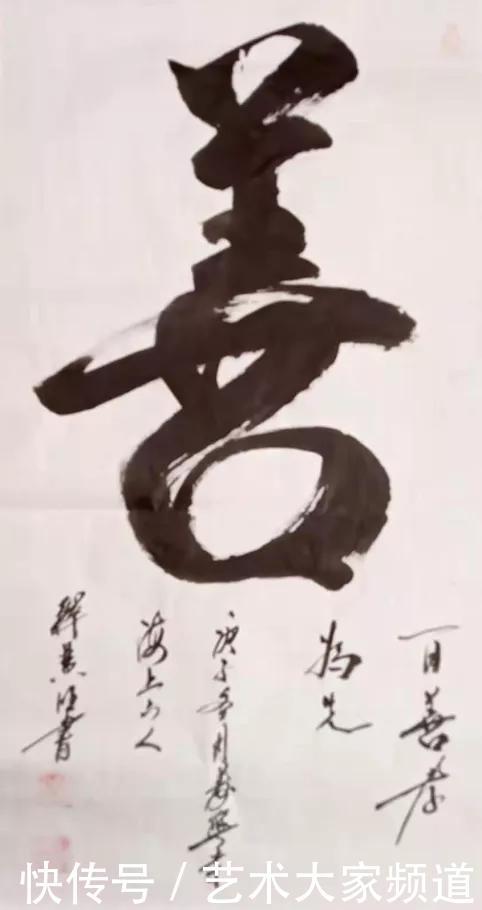 善
百善孝
為先
庚子
海上山人
書
快传号 / 艺术大家频道